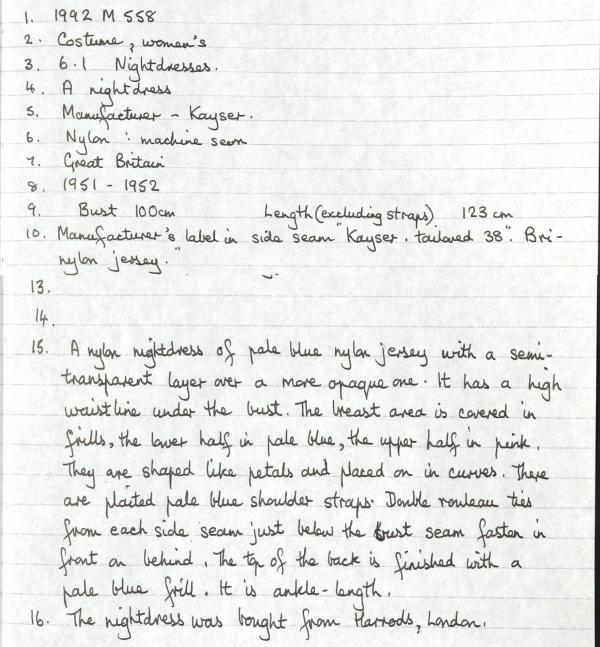 1. 1992 M 558
2. Costume, women's
3. 6.1 Nightdresses.
4. A nightdress
5. Manufacturer - Kayser.
6. Nylon : machine sewn
7. Great Britain
8. 1951 - 1952
9. Bust 100cm Length (excluding straps) 123 cm
10. Manufacturer's label in side seam "Kayser. tailored 38". Bri-
nylon jersey."
13.
14.
15. A nylon nightdress of pale blue nylon jersey with a semi-
transparent layer over a more opaque one. It has a high
waistline under the bust. The breast area is covered in
frills, the lower half in pale blue, the upper half in pink.
They are shaped like petals and placed on in curves. There
are plaited pale blue shoulder straps. Double rouleau ties
from each side seam just below the bust seam fasten in
front or behind. The top of the back is finished with a
pale blue frill. It is ankle-length.
16. The nightdress was bought from Harrods, London.